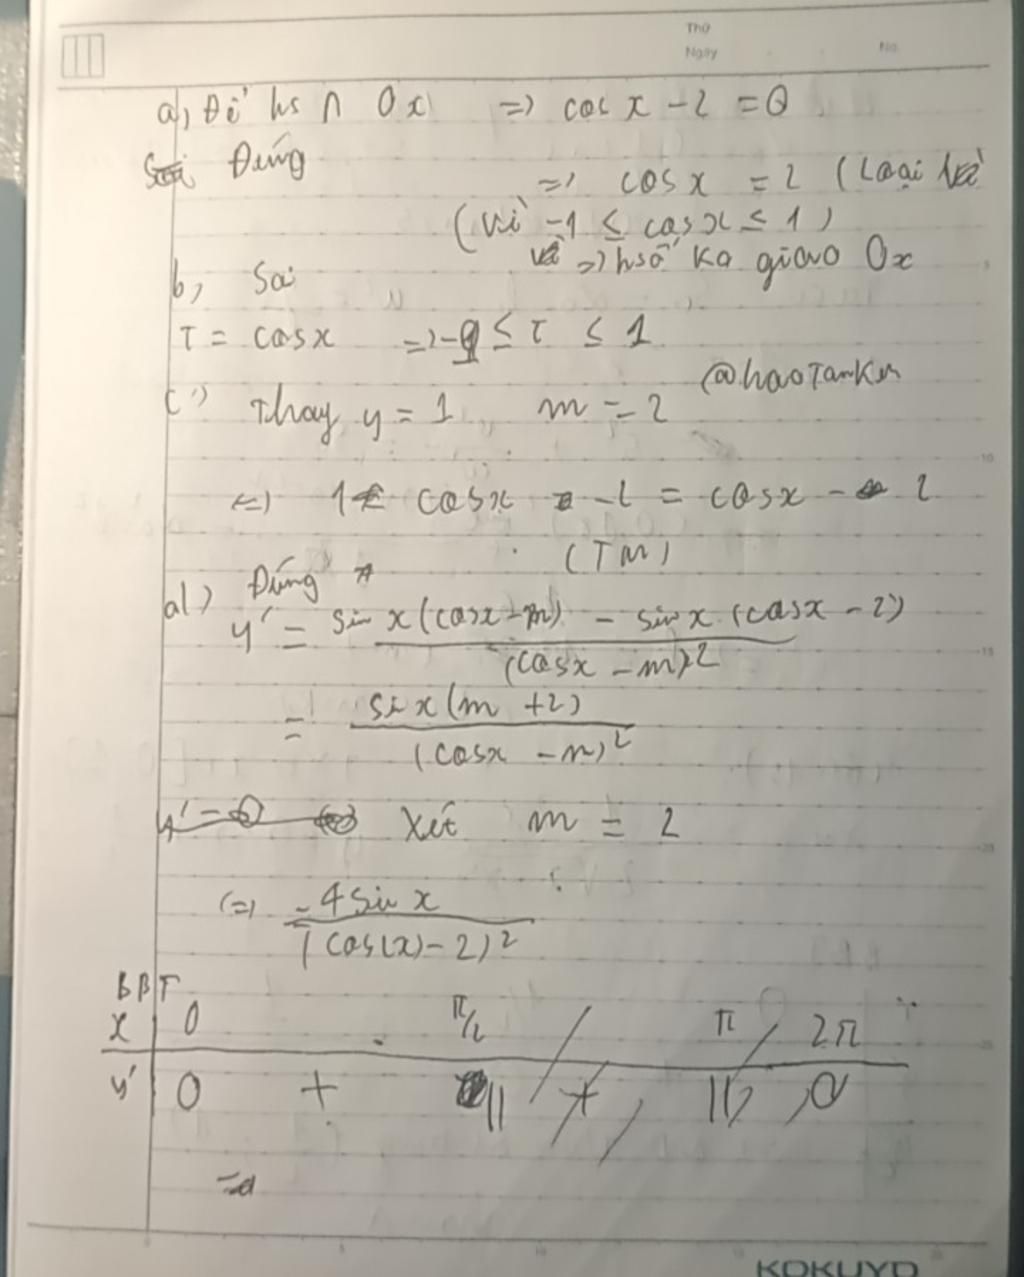 Thứ
Ngày No.
a, Để hs ∩ Ox => cos x - 2 = 0
Đúng
=> cos x = 2 (Loại
(Vì -1 ≤ cos x ≤ 1)
=> hsố ko giao Ox
b, Sai
T = cos x => -1 ≤ T ≤ 1
@haoTamKm
c) Thay y = 1 m = 2
<=> 1 cos x - 2 = cos x - 2
(TM)
Đúng
d) y' = sin x (cos x - m) - sin x (cos x - 2) / (cos x - m)²
= sin x (m + 2) / (cos x - m)²
y' = 0 Xét m = 2
(=) -4 sin x / (cos(x) - 2)²
BBT
x 0 π/2 π 2π
y' 0 + || + || 0
=>
KOKUYO